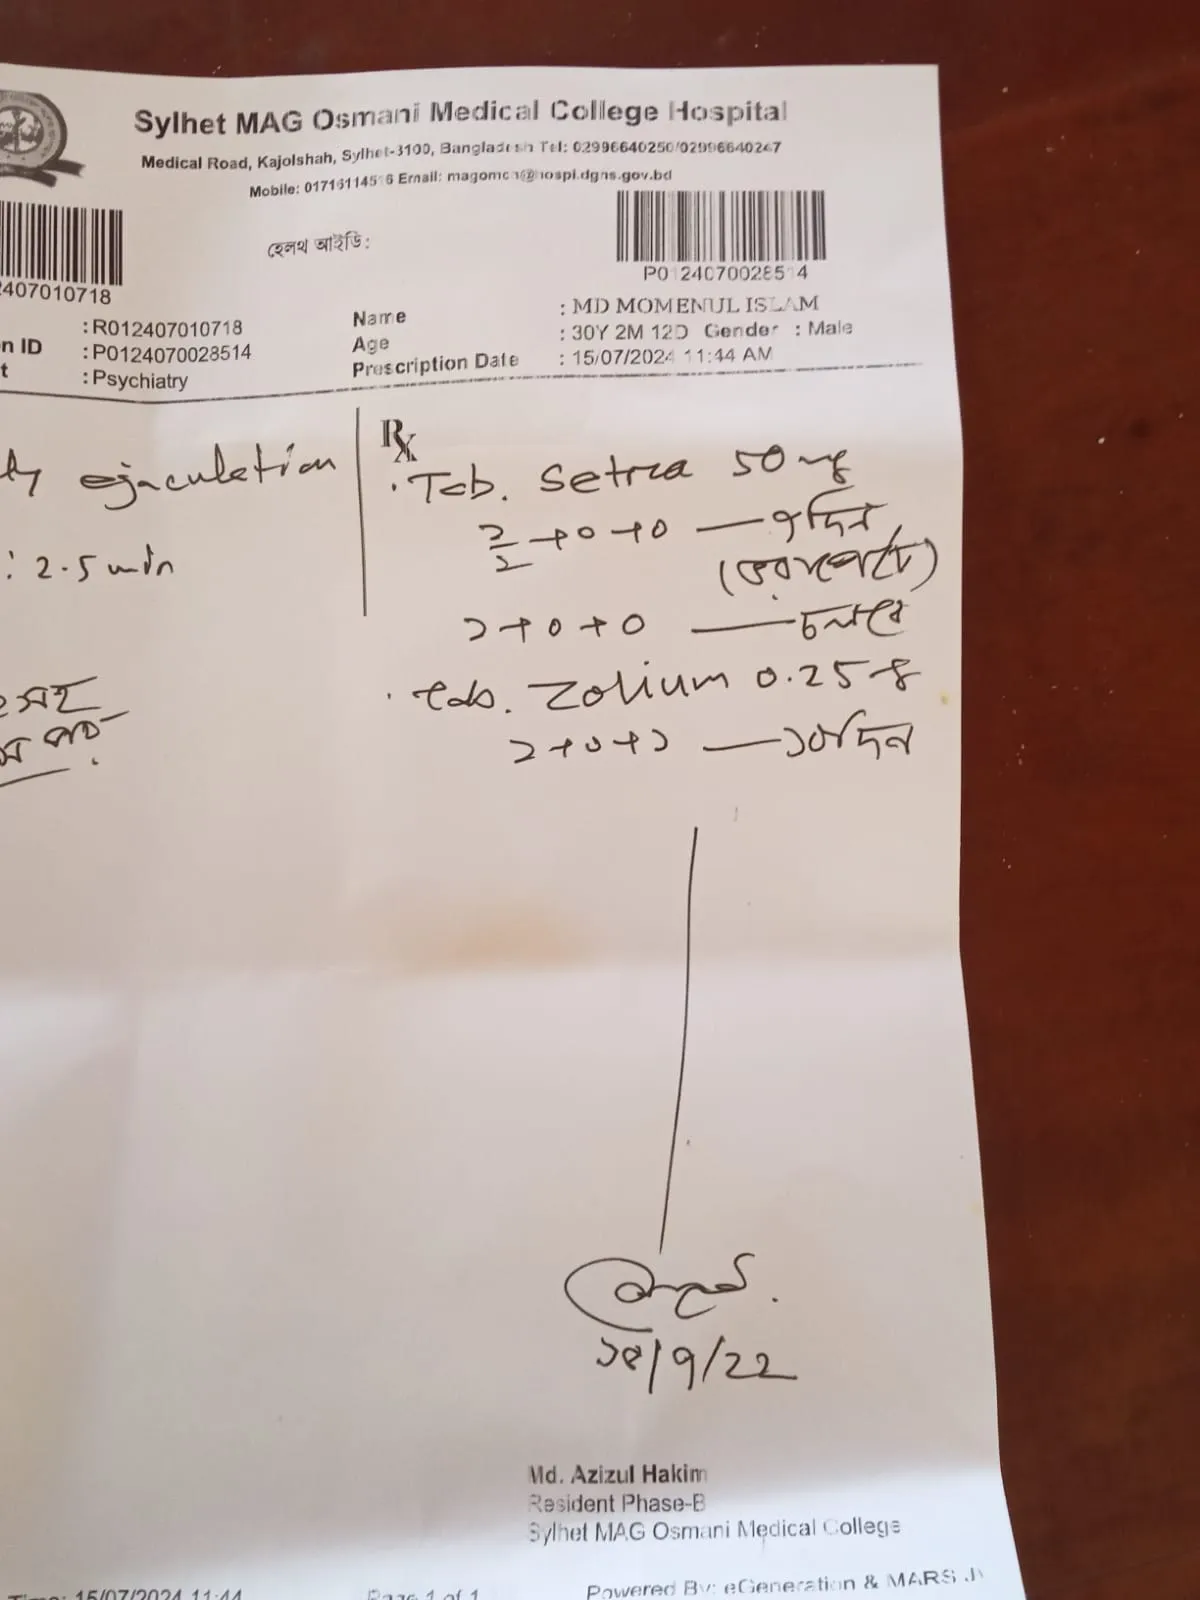 Sylhet MAG Osmani Medical College Hospital
Medical Road, Kajolshah, Sylhet-3100, Bangladesh Tel: 02996640250/02996640247
Mobile: 01716114516 Email: magomch@hospi.dghs.gov.bd
হেলথ আইডি:
2407010718
P0124070028514
: R012407010718
n ID : P0124070028514
t : Psychiatry
Name : MD MOMENUL ISLAM
Age : 30Y 2M 12D Gender : Male
Prescription Date : 15/07/2024 11:44 AM
ejaculation
: 2.5 min
Rx
. Tab. Setra 50 mg
১/২ + ০ + ০ — ৭ দিন
(ভরাপেটে)
১ + ০ + ০ — চলবে
. Tab. Zolium 0.25
১ + ০ + ১ — ১০ দিন
Md. Azizul Hakim
Resident Phase-B
Sylhet MAG Osmani Medical College
Time: 15/07/2024 11:44
Page 1 of 1
Powered By: eGeneration & MARS JV